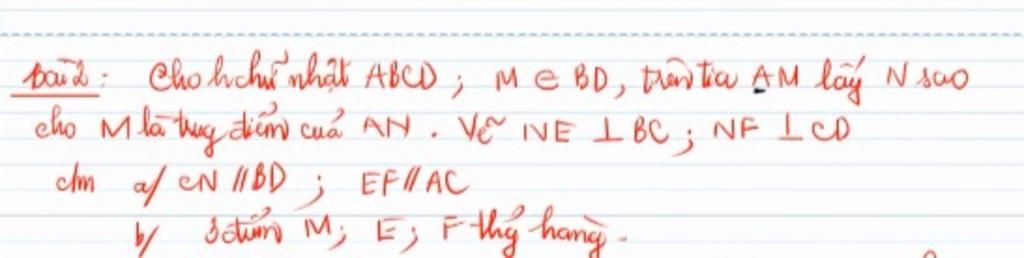 bài 2: Cho hchữ nhật ABCD; M ∈ BD, trên tia AM lấy N sao
cho M là trung điểm của AN. Vẽ NE ⊥ BC; NF ⊥ CD
cm a/ CN // BD; EF // AC
b/ 3 điểm M; E; F thẳng hàng.